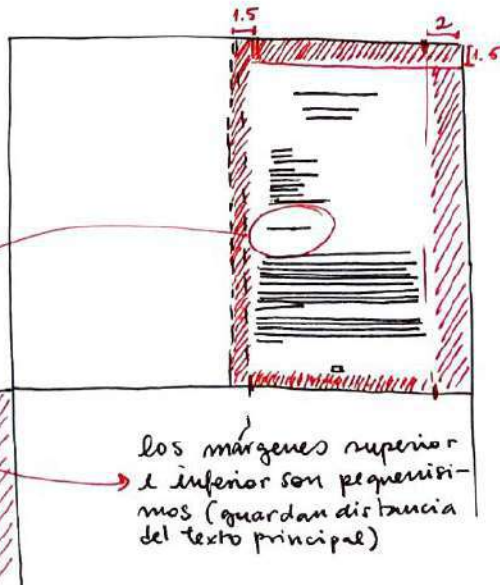 1.5
2
1.5
los márgenes superior
e inferior son pequenísi-
mos (guardan distancia
del texto principal)